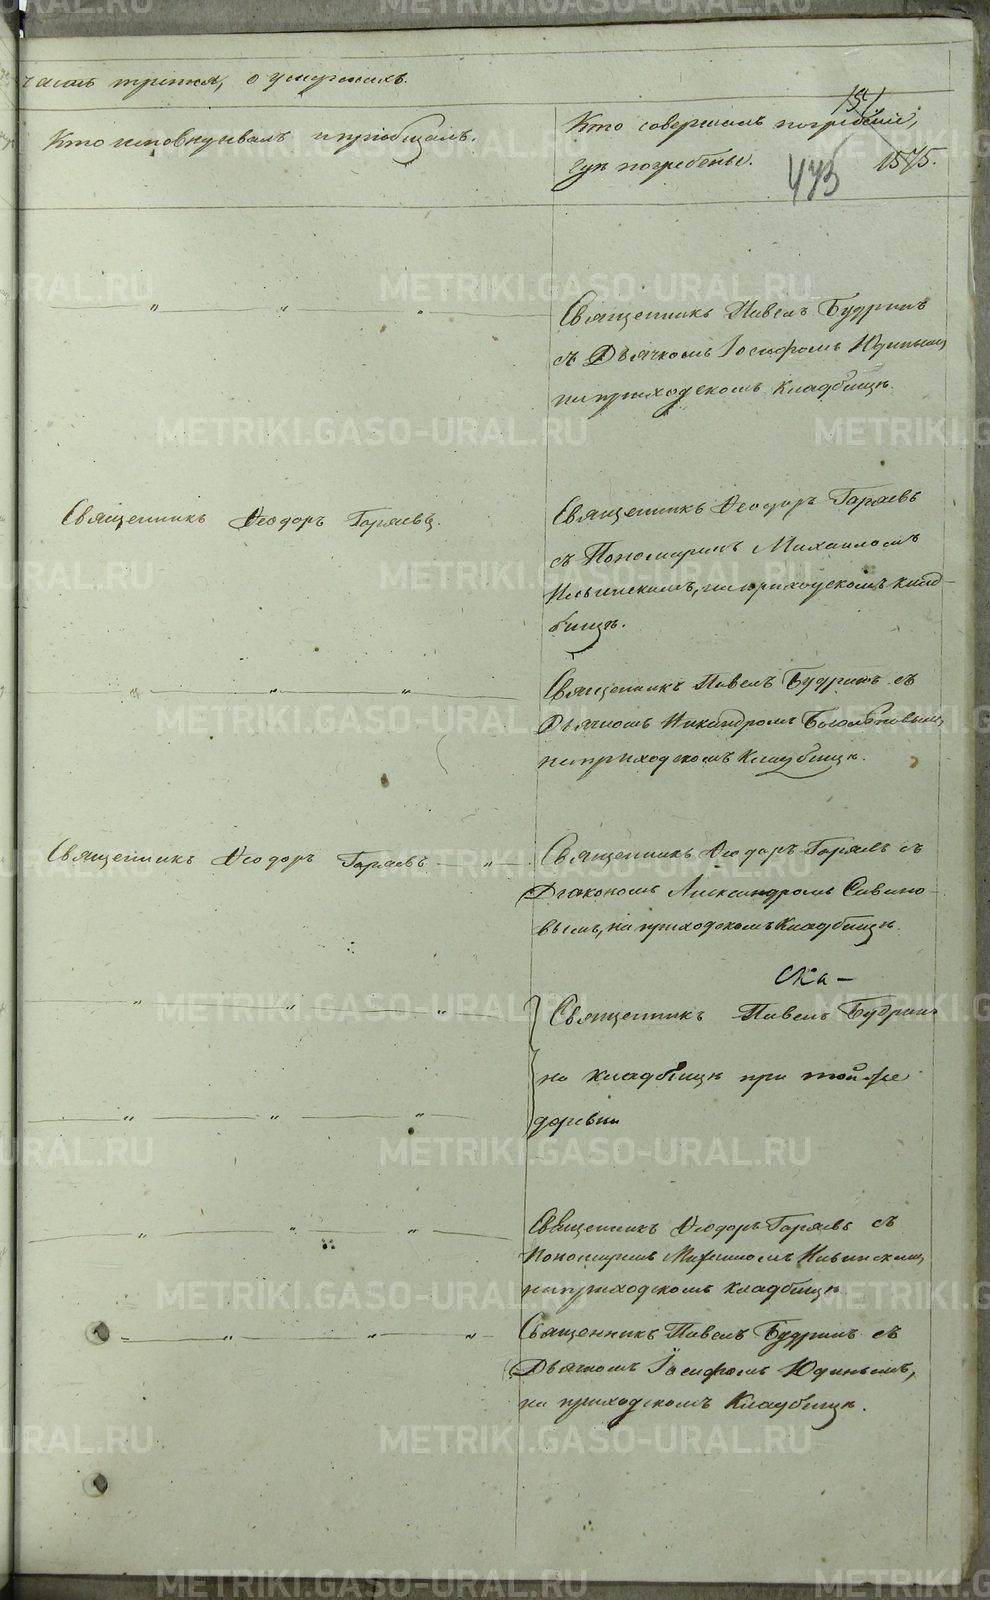 часть третья, о умершихъ.
Кто исповѣдывалъ и пріобщалъ.
Кто совершалъ погребеніе,
гдѣ погребены.
473
1575.
Священникъ Павелъ Будринъ
съ Дьячкомъ Іосифомъ Юдинымъ,
на приходскомъ кладбищѣ.
Священникъ Ѳеодоръ Гаряевъ.
Священникъ Ѳеодоръ Гаряевъ
съ Пономаремъ Михаиломъ
Ильинскимъ, на приходскомъ клад-
бищѣ.
Священникъ Павелъ Будринъ съ
Дьячкомъ Никандромъ
на приходскомъ кладбищѣ.
Священникъ Ѳеодоръ Гаряевъ
Священникъ Ѳеодоръ Гаряевъ съ
Діакономъ Александромъ Савино-
вымъ, на приходскомъ кладбищѣ.
Священникъ Павелъ Будринъ
на кладбищѣ при той же
деревни
Священникъ Ѳеодоръ Гаряевъ съ
Пономаремъ Михаиломъ Ильинскимъ,
на приходскомъ кладбищѣ.
Священникъ Павелъ Будринъ съ
Дьячкомъ Іосифомъ Юдинымъ,
на приходскомъ кладбищѣ.
METRIKI.GASO-URAL.RU